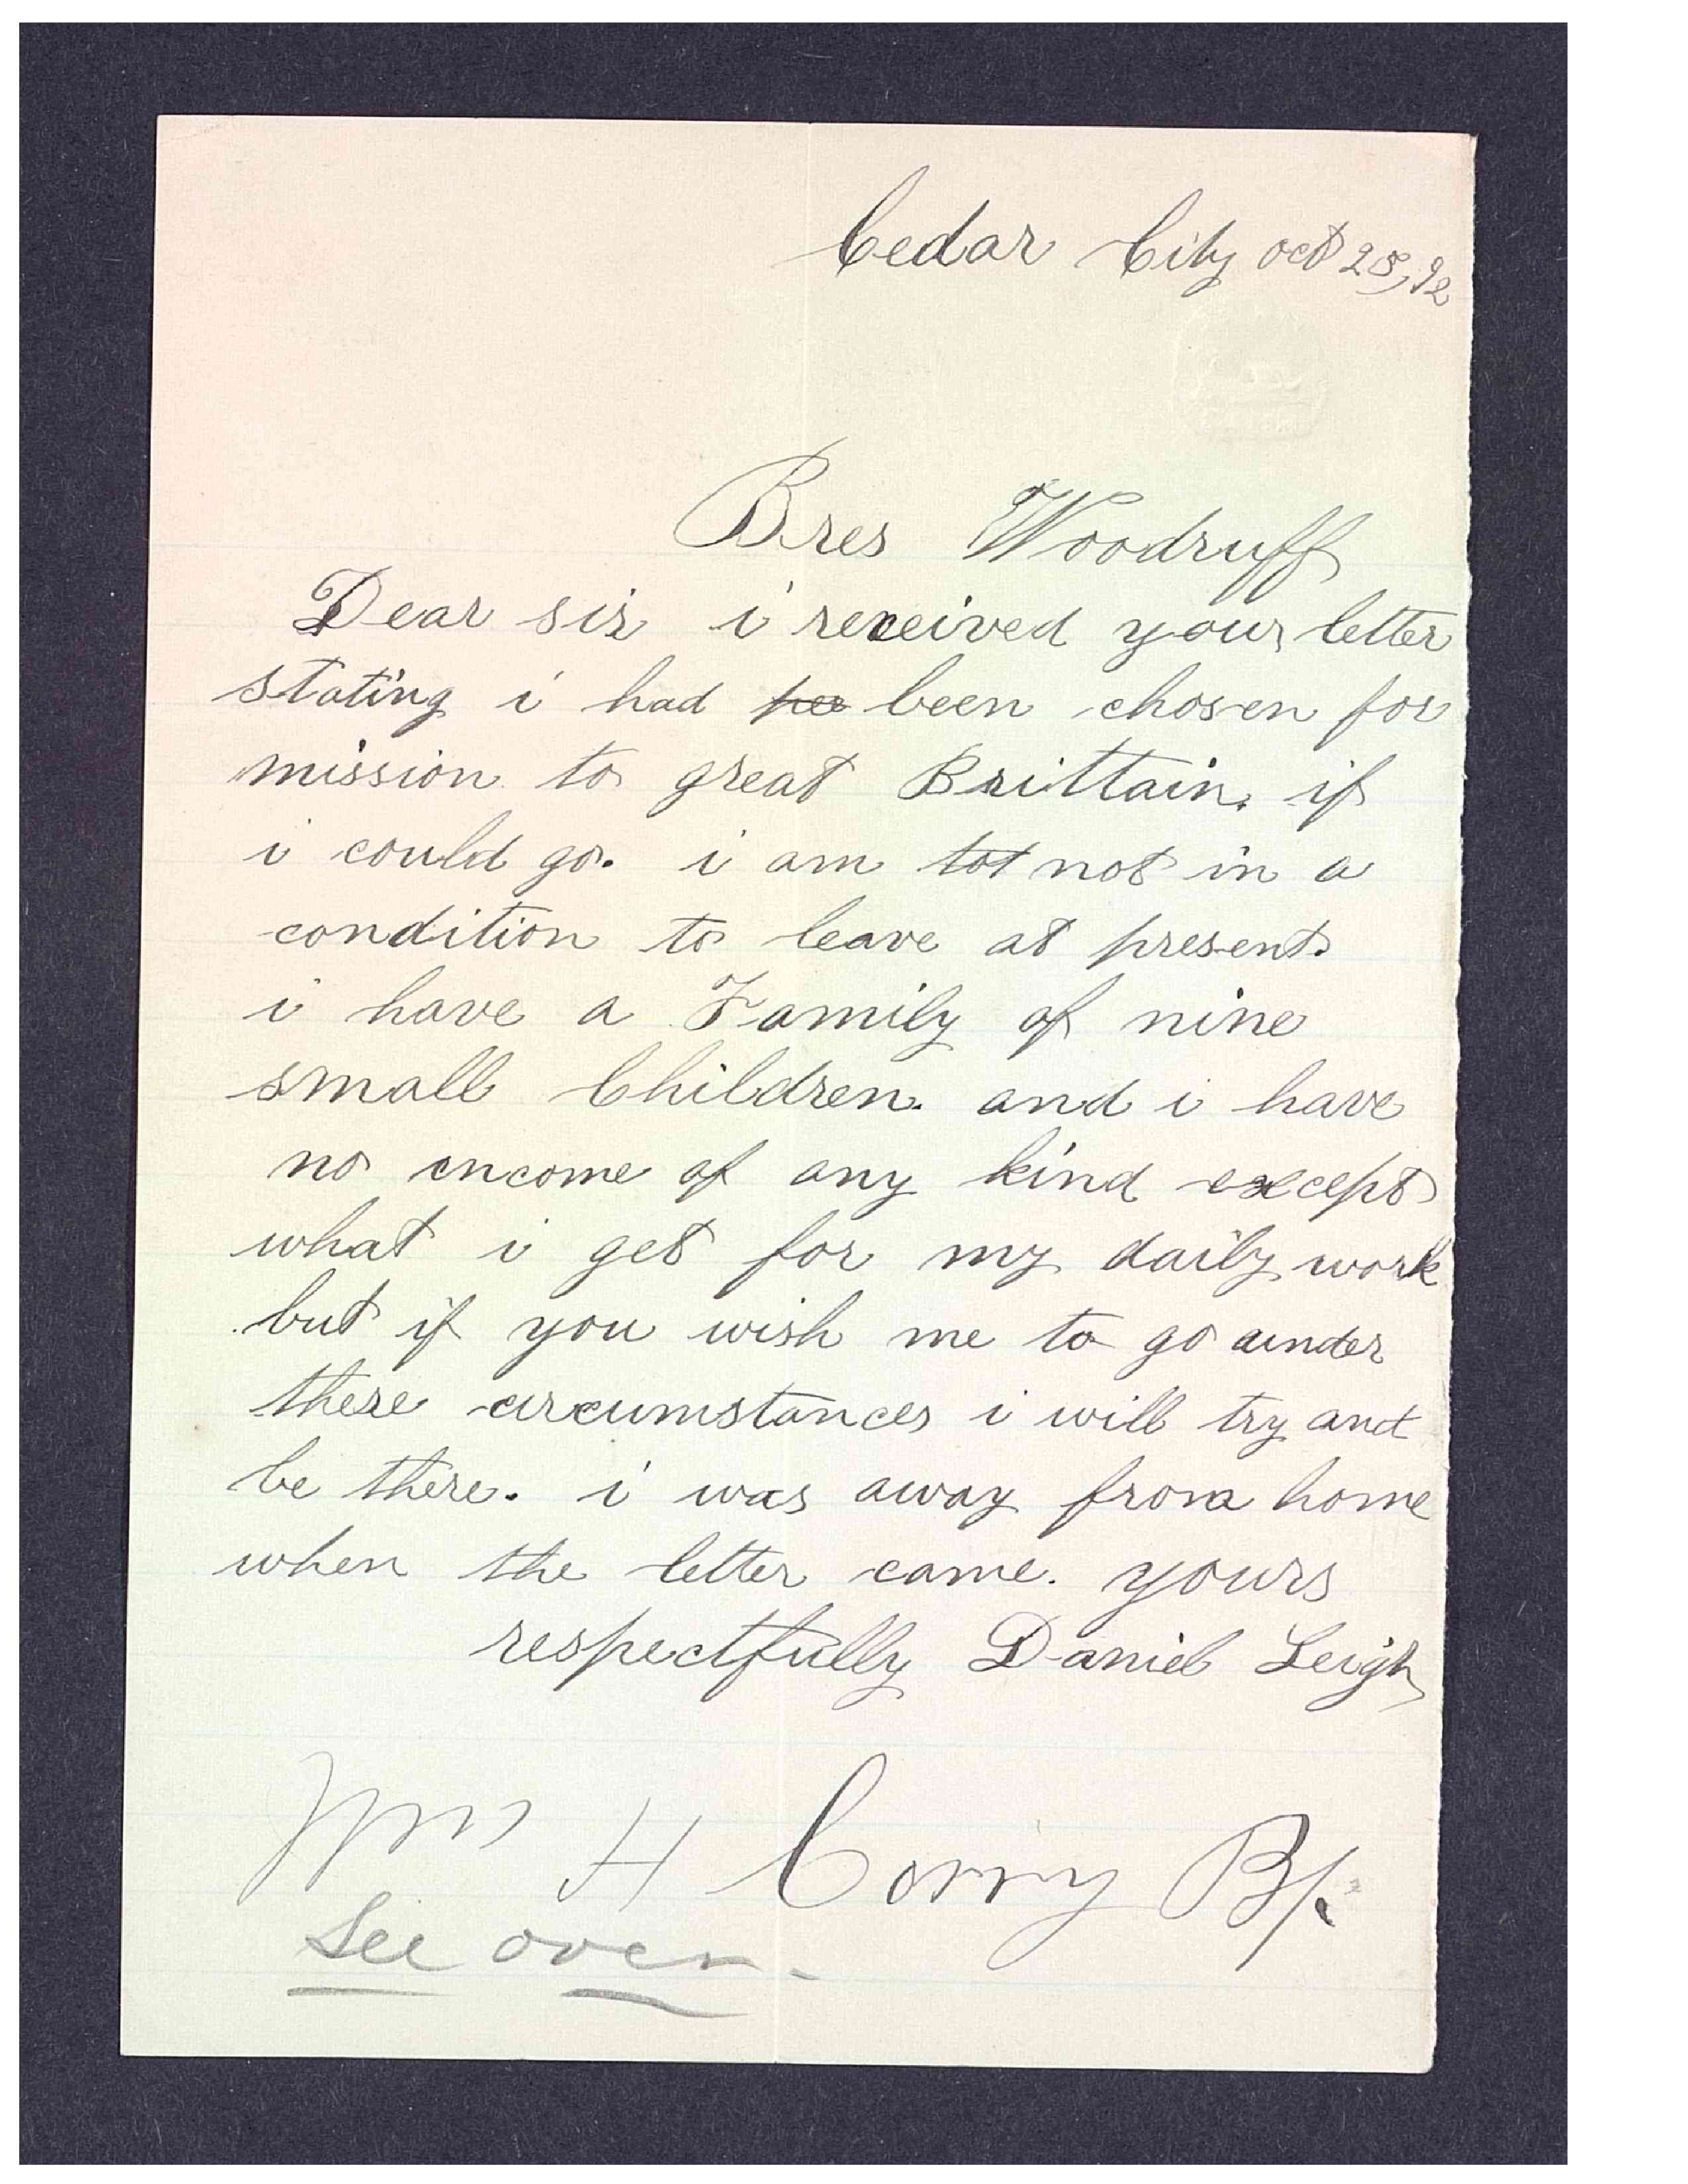 Cedar City oct 25, 92
Bres Woodruff
Dear sir i received your letter
stating i had be been chosen for
mission to great Brittain. if
i could go. i am tot not in a
condition to leave at present.
i have a Family of nine
small Children. and i have
no income of any kind except
what i get for my daily work
but if you wish me to go under
these circumstances i will try and
be there. i was away from home
when the letter came. yours
respectfully Daniel Leigh
Wm H Corry Bp.
See over.